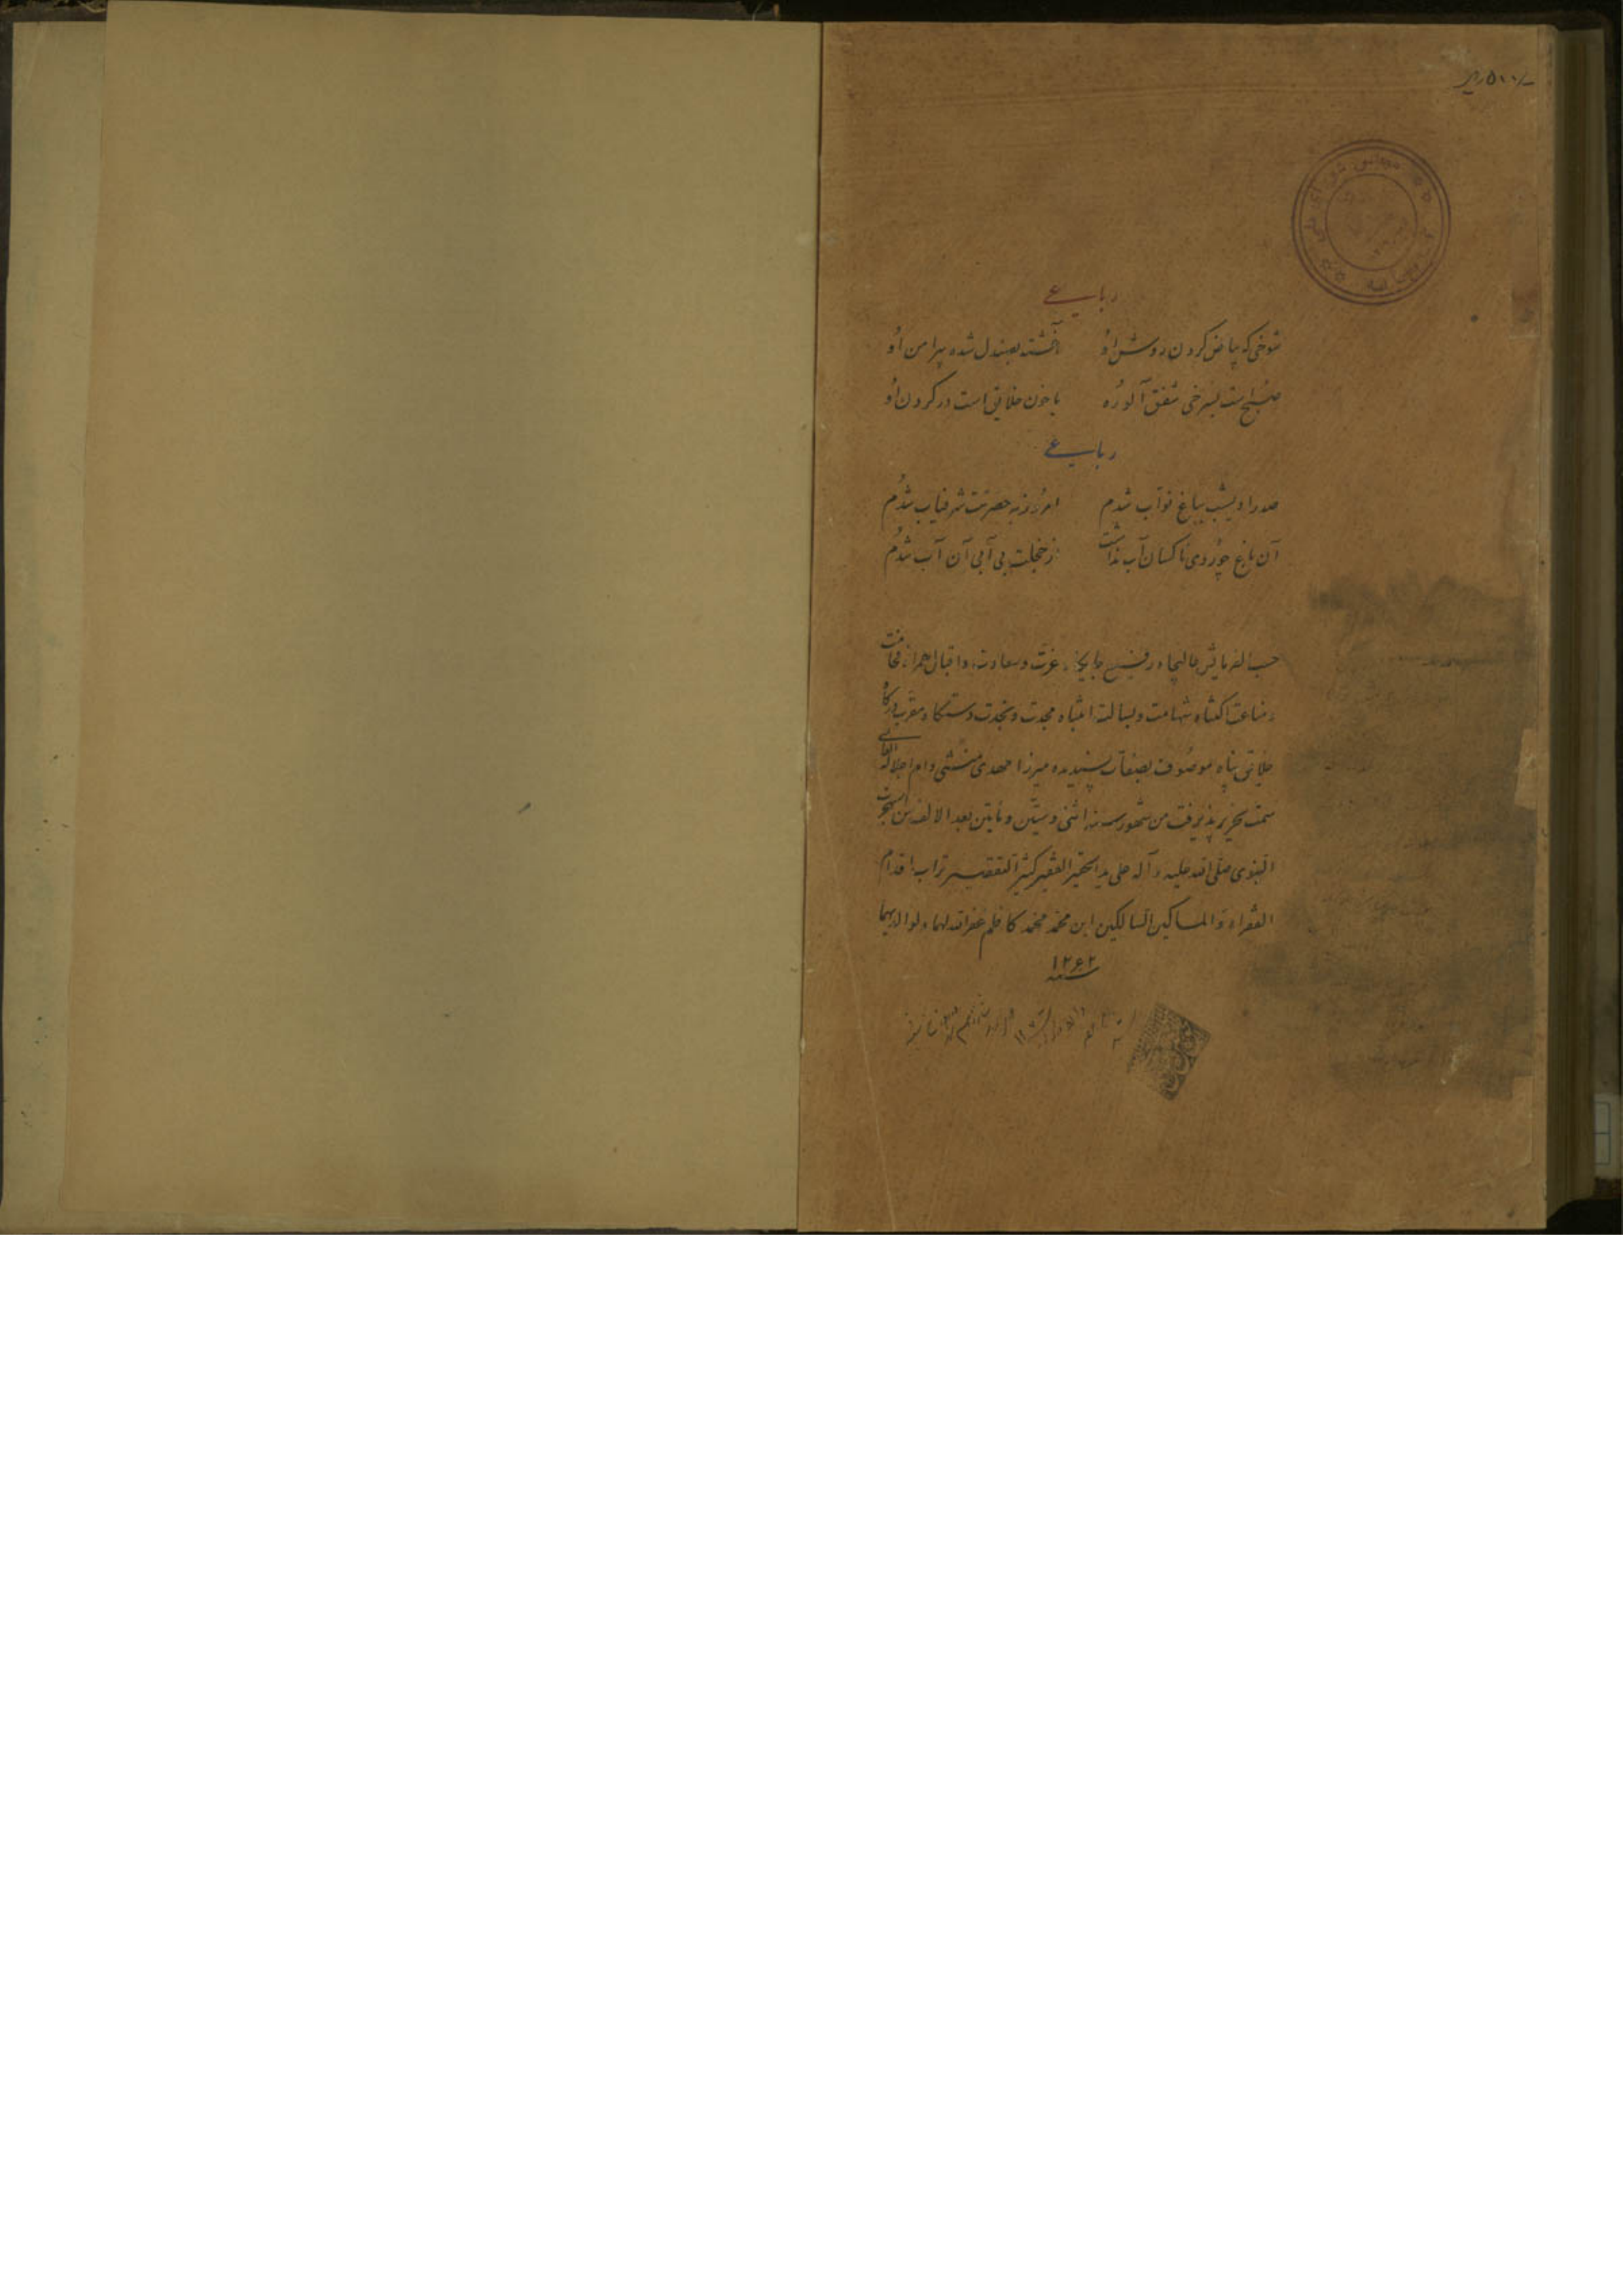 رباعی
شوخی که بیاض گردن روشن او آغشته بصندل شده پیرامن او
صبح است بسرخی شفق آلوده یا خون خلایق است در گردن او
رباعی
صدرا دیشب بباغ نواب شدم امروز بحضرتت شرفیاب شدم
آن باغ چو روی ناکسان آب نداشت از خجلت بی آبی آن آب شدم
حسب الفرمایش عالیجاه رفیع جایگاه عزت و سعادت و اقبال همراه فخامت
و مناعت اکتناه شهامت و بسالت انتباه مجدت و نجدت دستگاه مقرب درگاه
خلایق پناه موصوف بصفات پسندیده میرزا مهدی منشی دام اجلاله العالی
سمت تحریر پذیرفت من شهور سنه اثنی و ستین و مأتین بعد الالف من الهجرت
النبوی صلی الله علیه و آله علی ید الحقیر الفقیر کثیر التقصیر تراب اقدام
الفقراء و المساکین السالکین ابن محمد محمد کاظم غفر الله لهما و لوالدیهما
سنه ۱۲۶۲